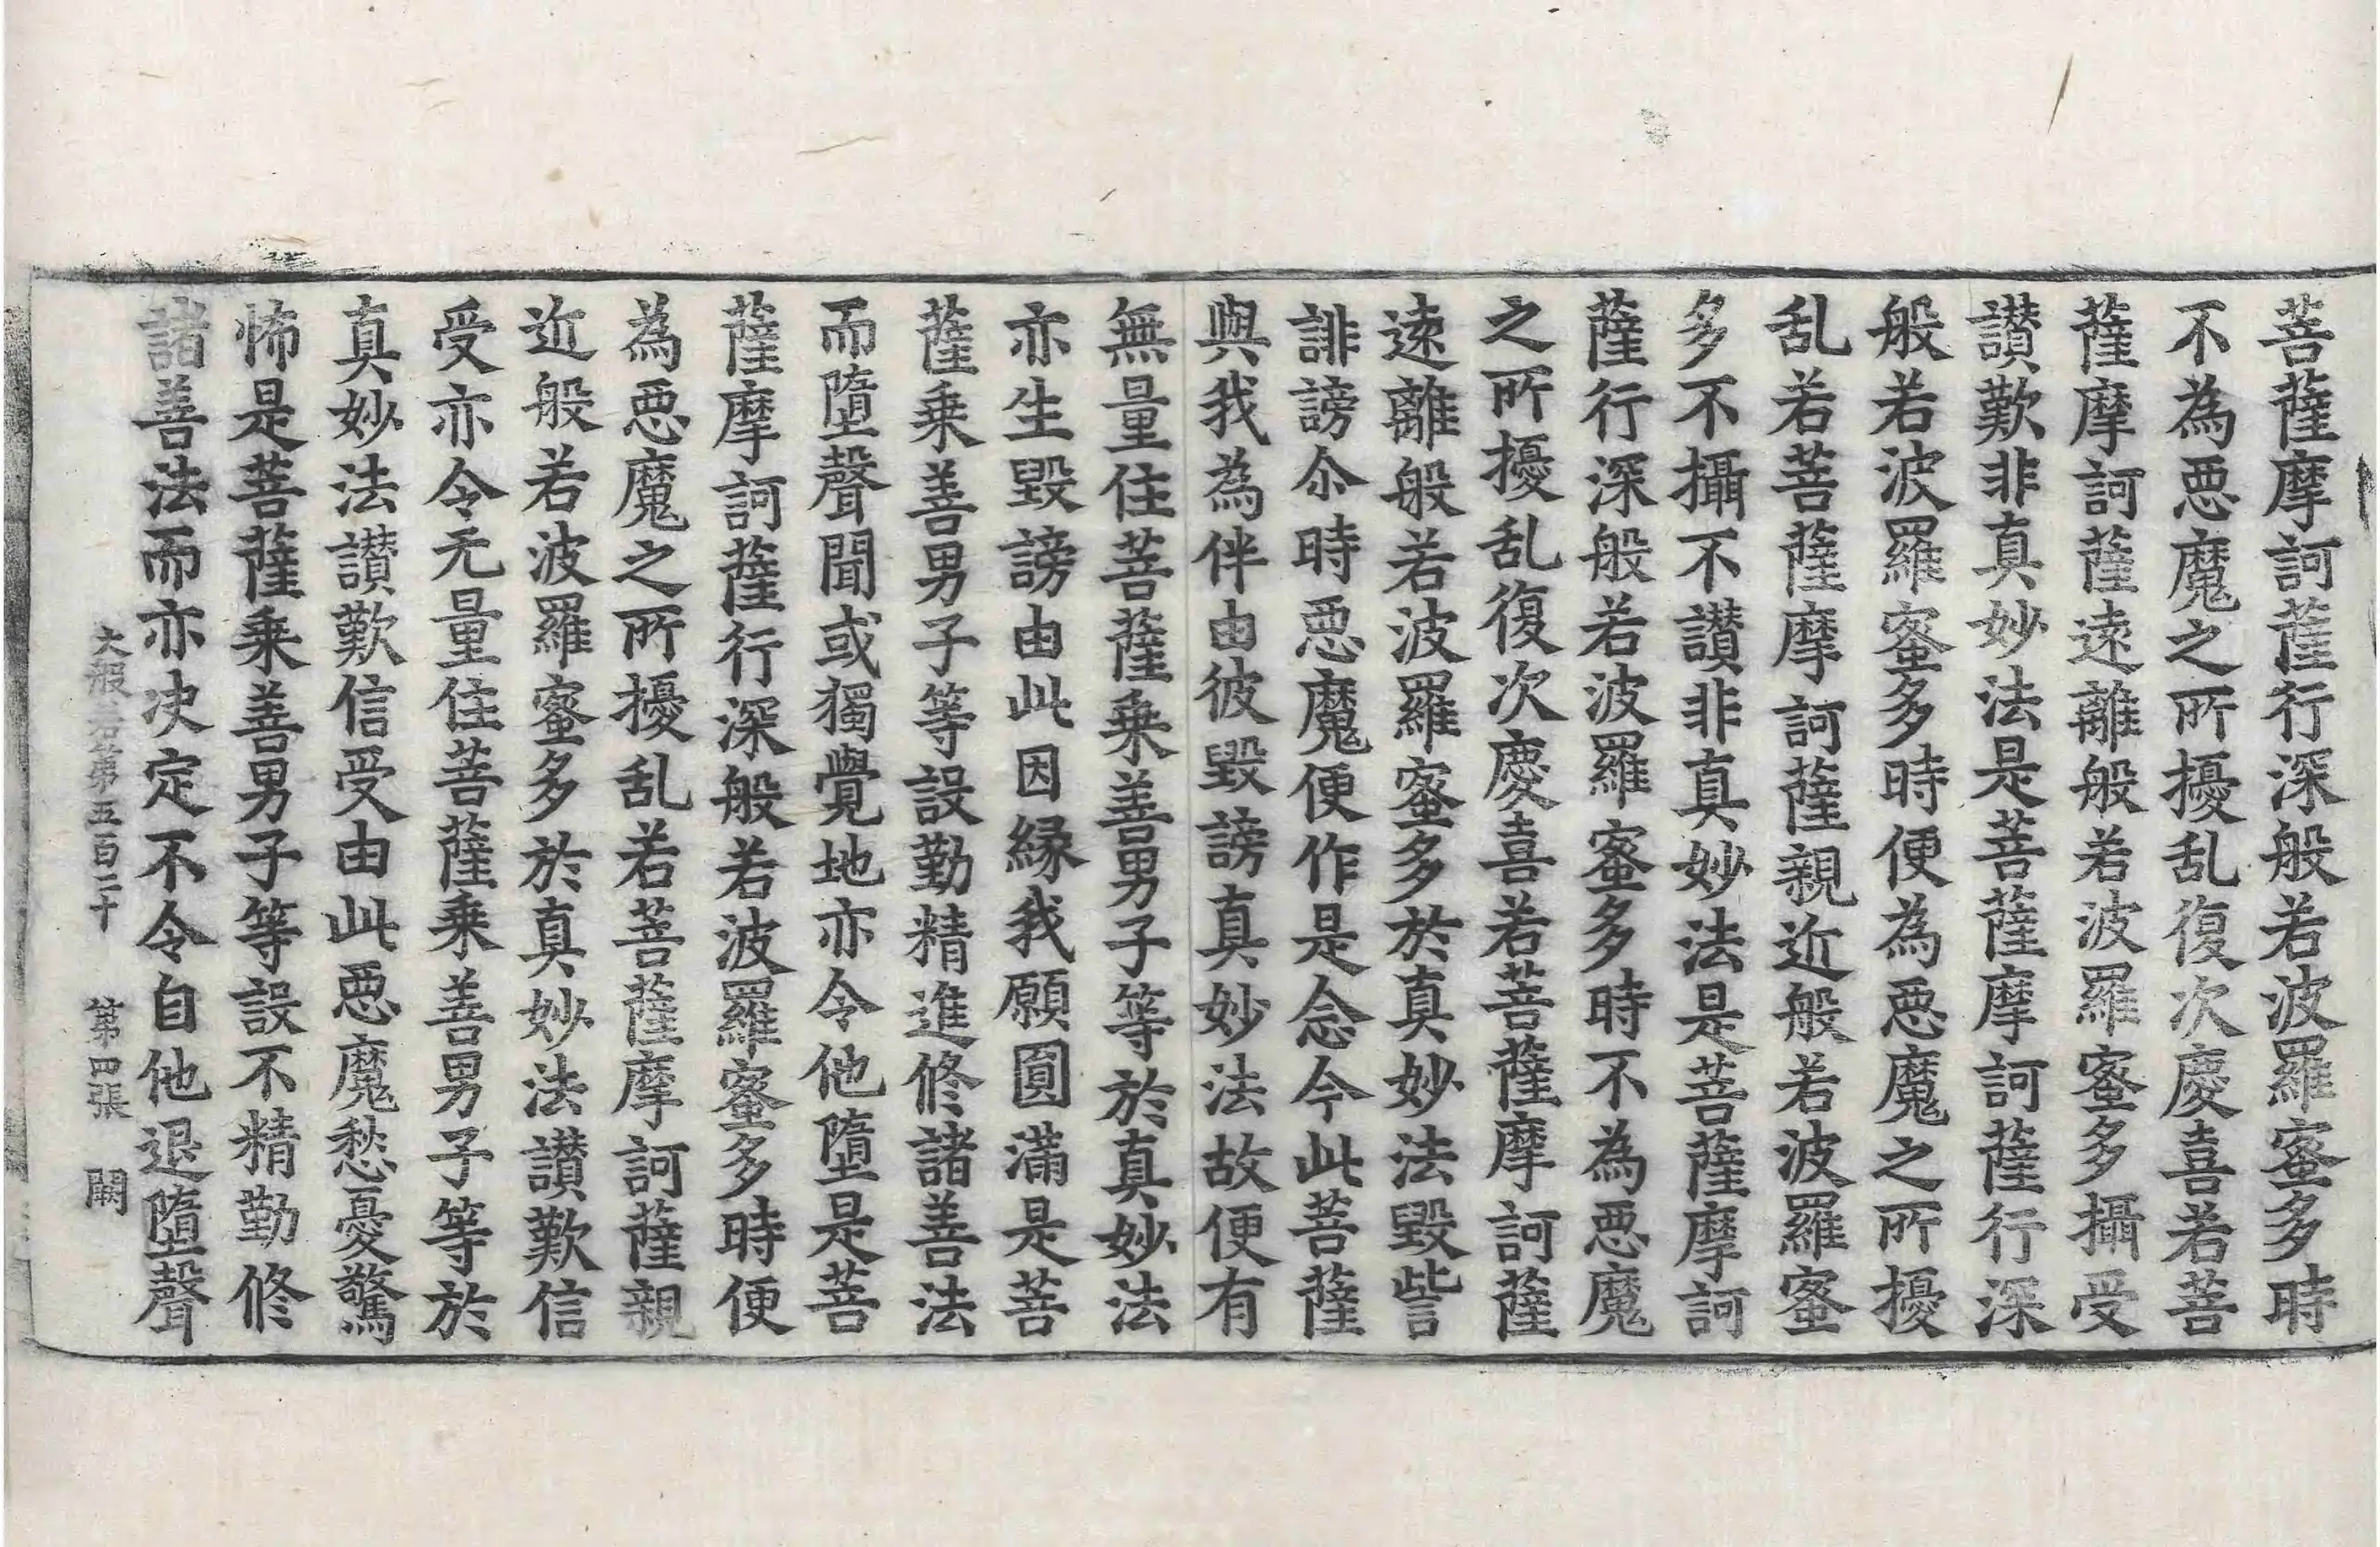 菩薩摩訶薩行深般若波羅蜜多時
不為惡魔之所擾乱復次慶喜若菩
薩摩訶薩遠離般若波羅蜜多攝受
讃歎非真妙法是菩薩摩訶薩行深
般若波羅蜜多時便為惡魔之所擾
乱若菩薩摩訶薩親近般若波羅蜜
多不攝不讃非真妙法是菩薩摩訶
薩行深般若波羅蜜多時不為惡魔
之所擾乱復次慶喜若菩薩摩訶薩
遠離般若波羅蜜多於真妙法毀訾
誹謗尒時惡魔便作是念今此菩薩
與我為伴由彼毀謗真妙法故便有
無量住菩薩乗善男子等於真妙法
亦生毀謗由此因縁我願圓滿是菩
薩乗善男子等設勤精進修諸善法
而墮聲聞或獨覺地亦令他墮是菩
薩摩訶薩行深般若波羅蜜多時便
為惡魔之所擾乱若菩薩摩訶薩親
近般若波羅蜜多於真妙法讃歎信
受亦令无量住菩薩乗善男子等於
真妙法讃歎信受由此惡魔愁憂驚
怖是菩薩乗善男子等設不精勤修
諸善法而亦决定不令自他退墮聲
大般若第五百二十 第四張 闕